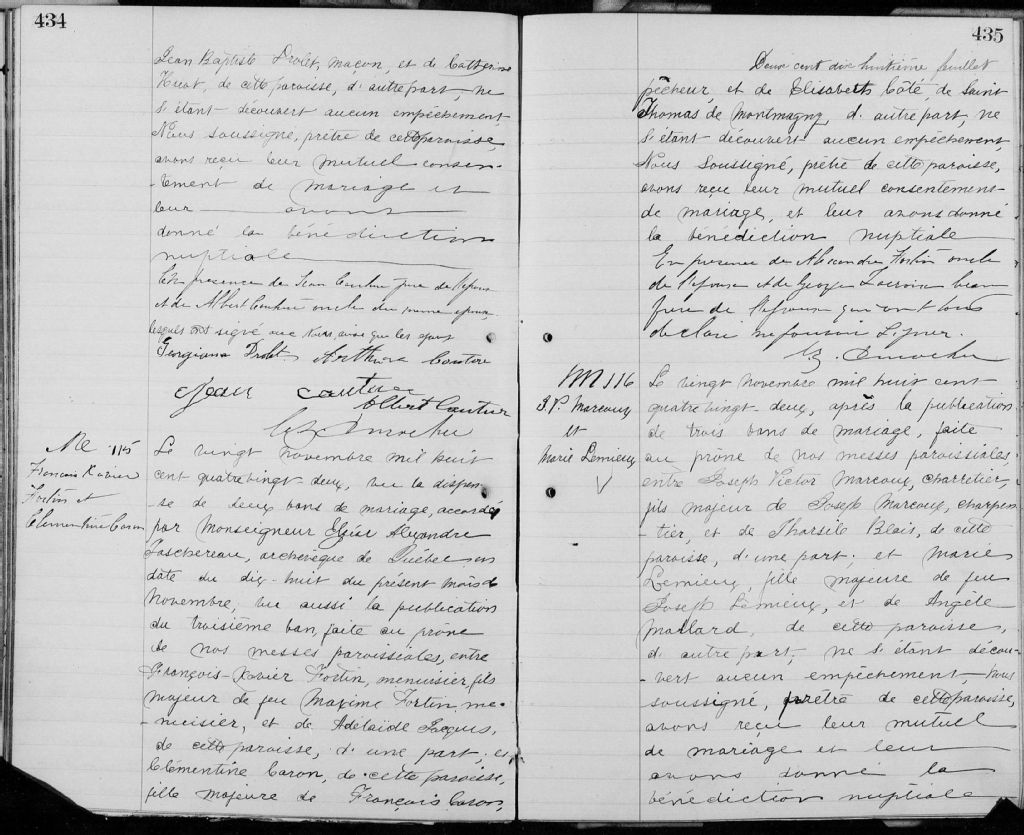 434
Jean Baptiste Drolet, maçon, et de Catherine
Huot, de cette paroisse, d'autre part, ne
s'étant découvert aucun empêchement
Nous soussigné, prêtre de cette paroisse,
avons reçu leur mutuel consen-
-tement de mariage et
leur avons
donné la bénédiction
nuptiale
En présence de Jean Couture père de l'époux
et de Albert Couture oncle du même époux
lesquels ont signé avec Nous ainsi que les époux
Georgiana Drolet Arthur Couture
Jean Couture
Albert Couture
M 115
François Xavier
Fortin et
Clementine Caron
Le vingt novembre mil huit
cent quatrevingt deux, vu la dispen-
-se de deux bans de mariage, accordée
par Monseigneur Elzéar Alexandre
Taschereau, archevêque de Québec en
date du dix-huit du présent mois de
Novembre, vu aussi la publication
du troisième ban, faite au prône
de nos messes paroissiales, entre
François-Xavier Fortin, menuisier, fils
majeur de feu Maxime Fortin, me-
-nuisier, et de Adélaïde Jacques,
de cette paroisse, d'une part; et
Clémentine Caron, de cette paroisse,
fille majeure de François Caron,
435
Deux cent dix huitième feuillet
pêcheur, et de Elisabeth Côté, de Saint
Thomas de Montmagny, d'autre part, ne
s'étant découvert aucun empêchement
Nous soussigné, prêtre de cette paroisse,
avons reçu leur mutuel consentement
de mariage, et leur avons donné
la bénédiction nuptiale
En présence de Alexandre Fortin oncle
de l'épouse et de George Lacroix beau
frère de l'épouse qui ont tous
déclaré ne savoir signer
M 116
J. V. Marcoux
et
Marie Lemieux
Le vingt Novembre mil huit cent
quatrevingt-deux, après la publication
de trois bans de mariage, faite
au prône de nos messes paroissiales,
entre Joseph Victor Marcoux, charretier,
fils majeur de Joseph Marcoux, charpen-
-tier, et de Tharsile Blais, de cette
paroisse, d'une part; et Marie
Lemieux, fille majeure de feu
Joseph Lemieux, et de Angèle
Mallard, de cette paroisse,
d'autre part, ne s'étant décou-
-vert aucun empêchement, Nous
soussigné, prêtre de cette paroisse,
avons reçu leur mutuel
de mariage et leur
avons donné la
bénédiction nuptiale